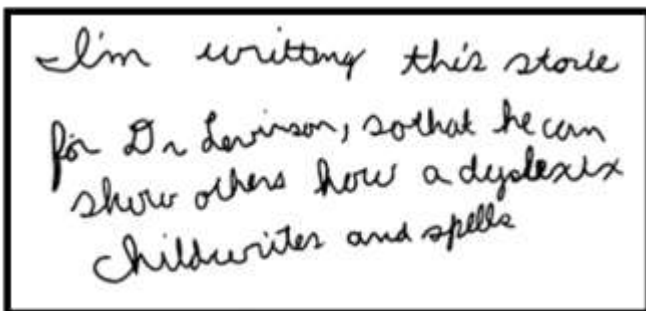 I'm writting this storie
for Dr Levinson, sothat he can
show others how a dyslexix
childwrites and spells